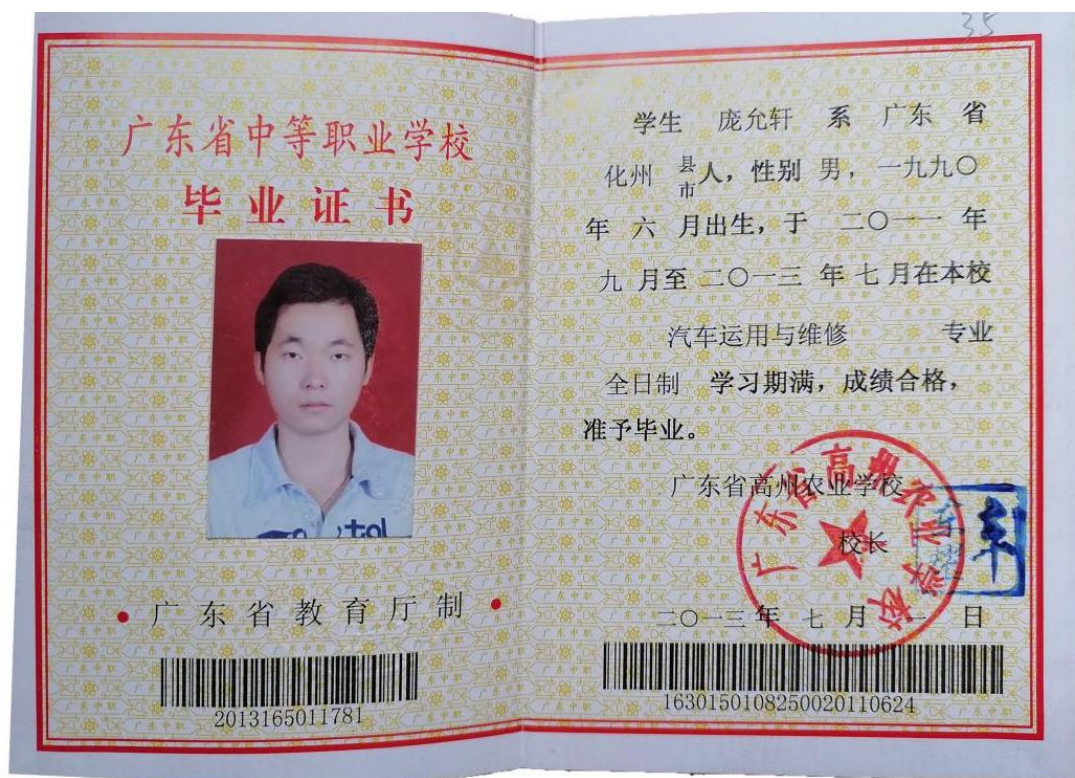 35
广东省中等职业学校
毕业证书
广东省教育厅制
2013165011781
学生 庞允轩 系 广东 省
化州 县市人，性别 男，一九九〇
年 六 月出生，于 二〇一一 年
九 月至 二〇一三 年 七 月在本校
汽车运用与维修 专业
全日制 学习期满，成绩合格，
准予毕业。
广东省高州农业学校
校长
二〇一三 年 七 月 一 日
广东省高州农业学校
163015010825002011​0624